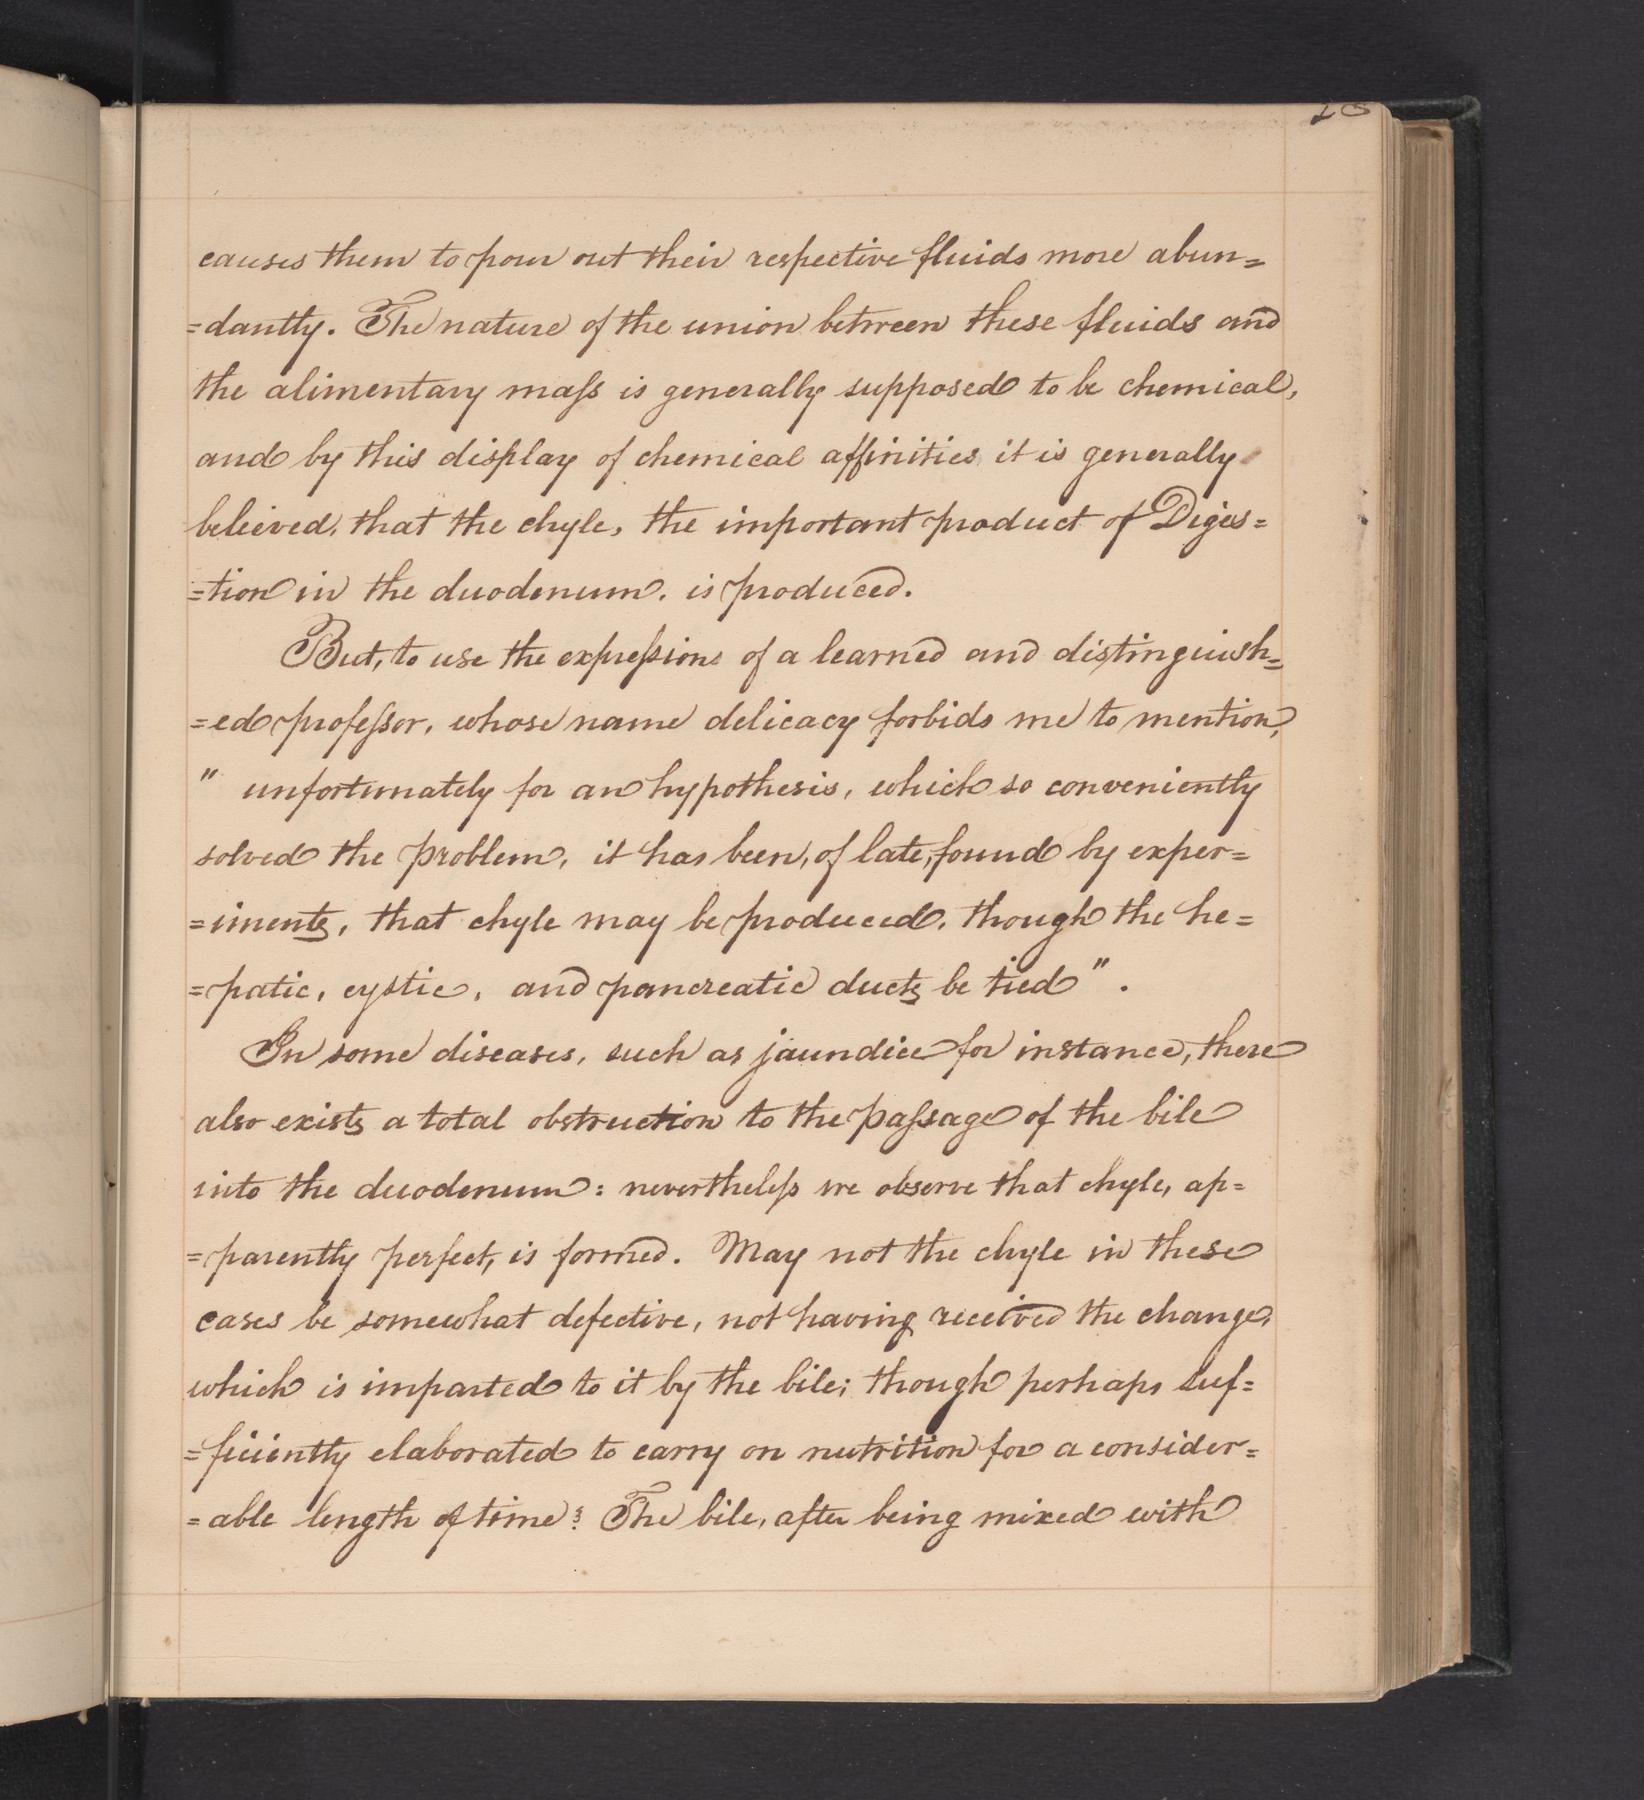 causes them to pour out their respective fluids more abun=
=dantly. The nature of the union between these fluids and
the alimentary maſs is generally supposed to be chemical,
and by this display of chemical affinities it is generally
beleived, that the chyle, the important product of Diges=
=tion in the duodenum, is produced.
But, to use the expreſsions of a learned and distinguish=
=ed profeſsor, whose name delicacy forbids me to mention,
" unfortunately for an hypothesis, which so conveniently
solved the problem, it has been, of late, found by exper=
=iments, that chyle may be produced, though the he=
=patic, cystic, and pancreatic ducts be tied".
In some diseases, such as jaundice for instance, there
also exists a total obstruction to the paſsage of the bile
into the duodenum: nevertheleſs we observe that chyle, ap=
=parently perfect, is formed. May not the chyle in these
cases be somewhat defective, not having received the change,
which is imparted to it by the bile; though perhaps suf=
=ficiently elaborated to carry on nutrition for a consider=
=able length of time? The bile, after being mixed with